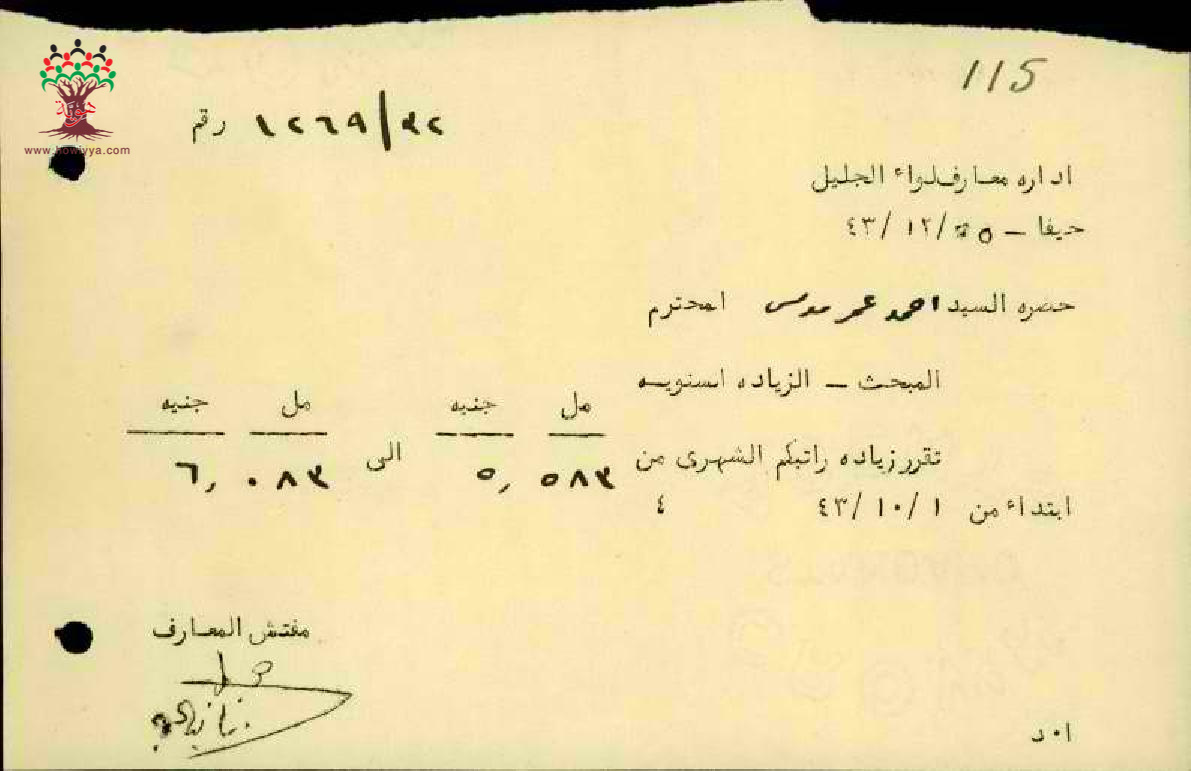 115
رقم ١٢٦٩/٣٢
www.howiyya.com
هوية
اداره معارف لواء الجليل
حيفا – ١٢/ ٤٣/
حضره السيد احمد عمر المحترم
المبحث – الزياده السنويه
مل جنيه مل جنيه
تقرر زياده راتبكم الشهرى من ٥٨٣ ,٥ الى ٠٨٣ ,٦
ابتداء من ١/ ١٠/ ٤٣ ٤
مفتش المعارف
ا٠د